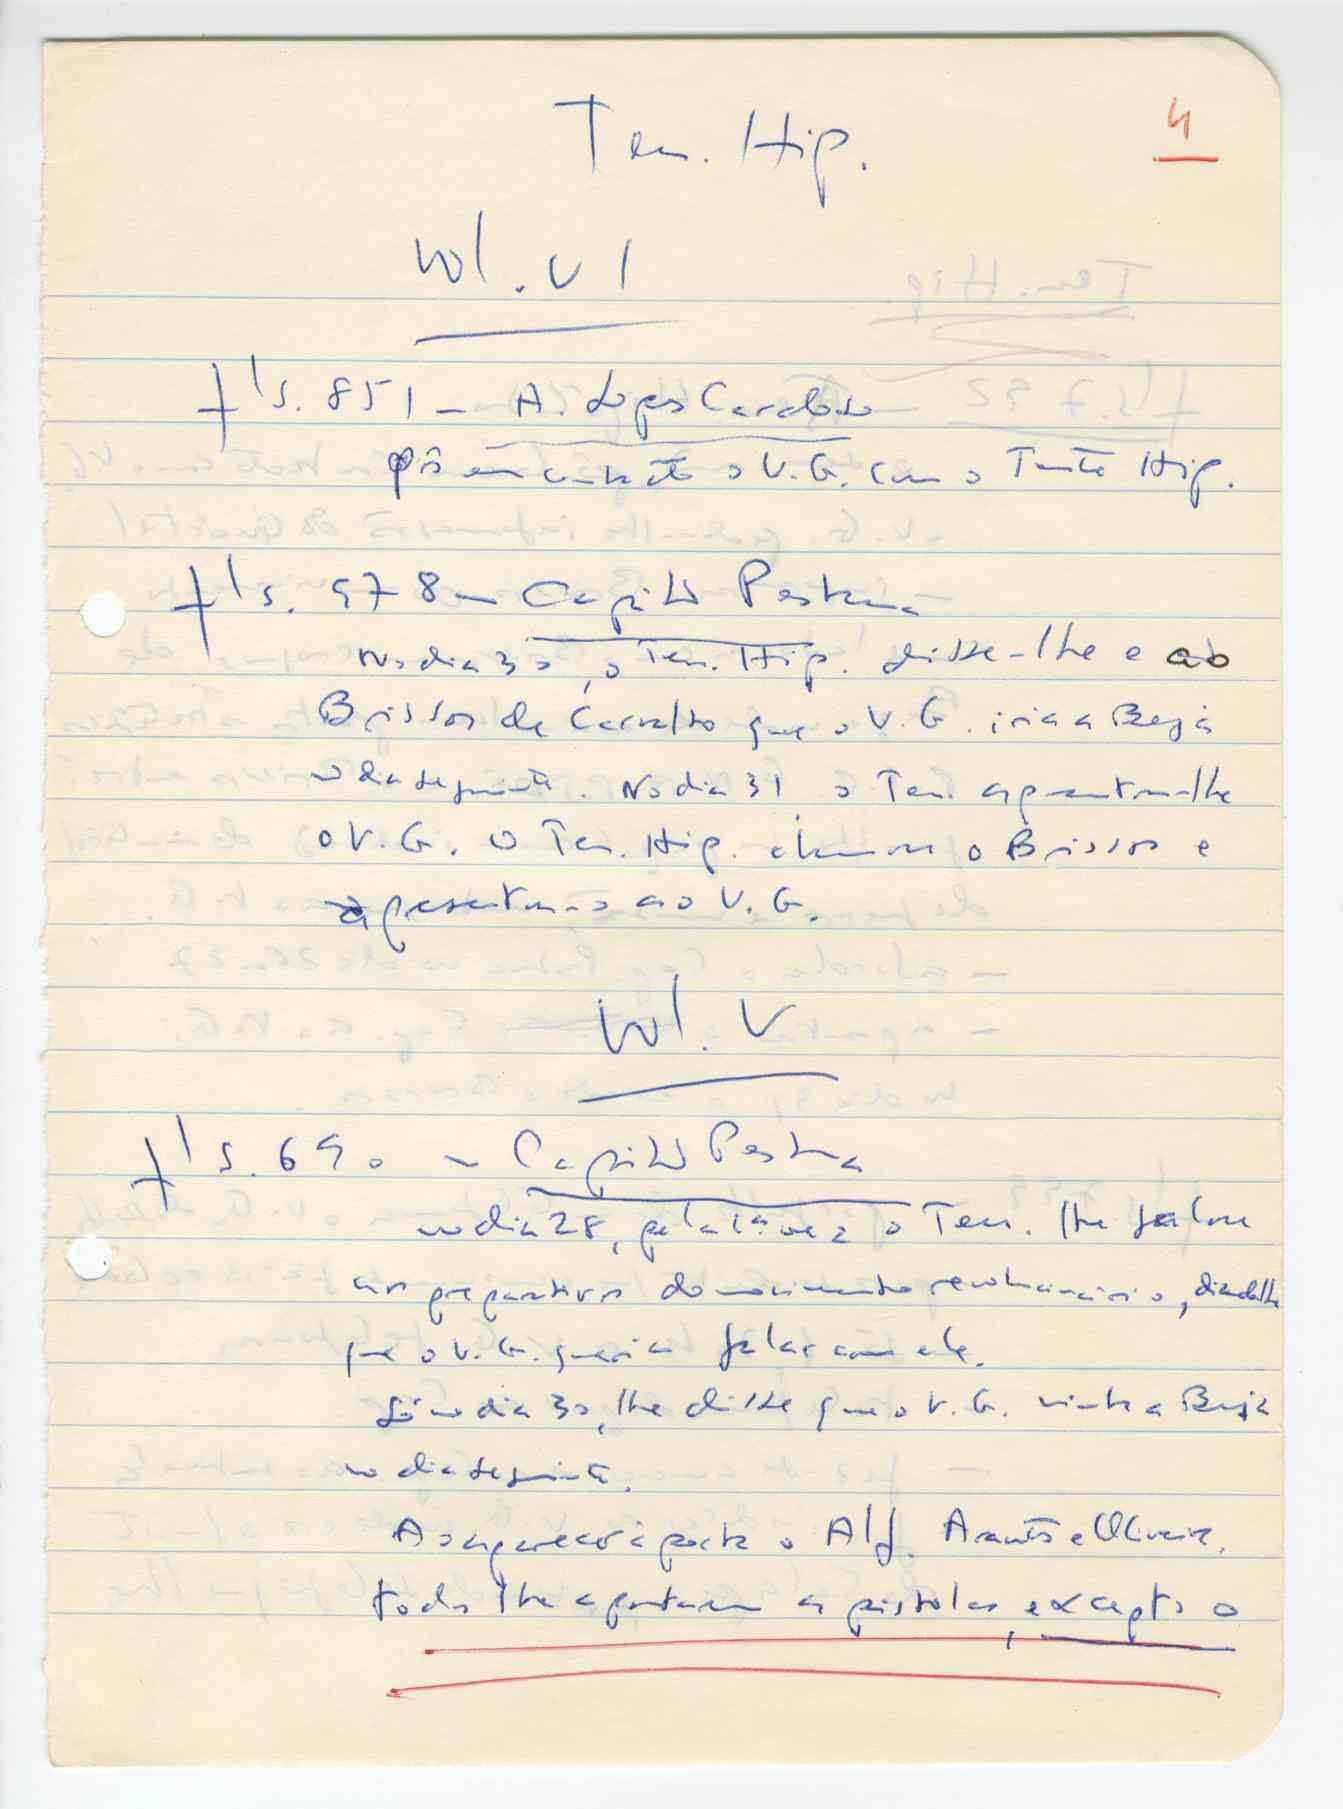 Ten. Hip.
4
Vol. VI
fls. 851 – A. Lopes Cardoso
pôs em contacto o V. G. com o Tenente Hip.
fls. 978 – Capitão Pestana
No dia 30, o Ten. Hip. disse-lhe e ao
Brissos de Carvalho que o V. G. iria a Beja
no dia seguinte. No dia 31 o Ten. apresentou-lhe
o V. G. O Ten. Hip. chamou o Brissos e
apresentou-o ao V. G.
Vol. V
fls. 690 – Capitão Pestana
no dia 28, pela 1ª vez o Ten. lhe falou
nos preparativos do movimento revolucionário, dizendo-lhe
que o V. G. queria falar com ele.
Só no dia 30, lhe disse que o V. G. vinha a Beja
no dia seguinte.
Ao aparecer à porta o Alf. Arantes e Oliveira,
todos lhe apontaram as pistolas, excepto o